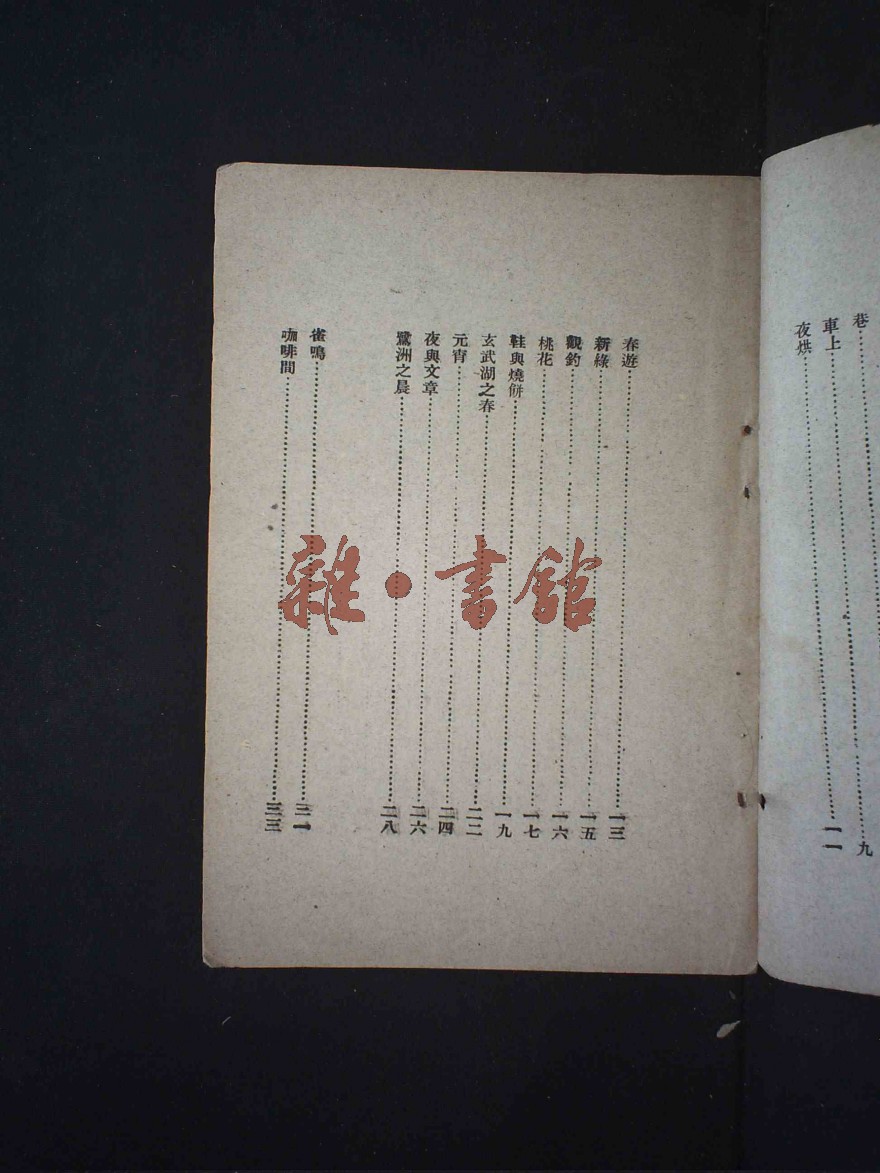 巷……九
車上……一一
夜烘
春遊……一三
新綠……一五
觀釣……一六
桃花……一七
鞋與燒餅……一九
玄武湖之春……二二
元宵……二四
夜與文章……二六
鷺洲之晨……二八
雀鳴……三一
咖啡間……三三
雜·書館